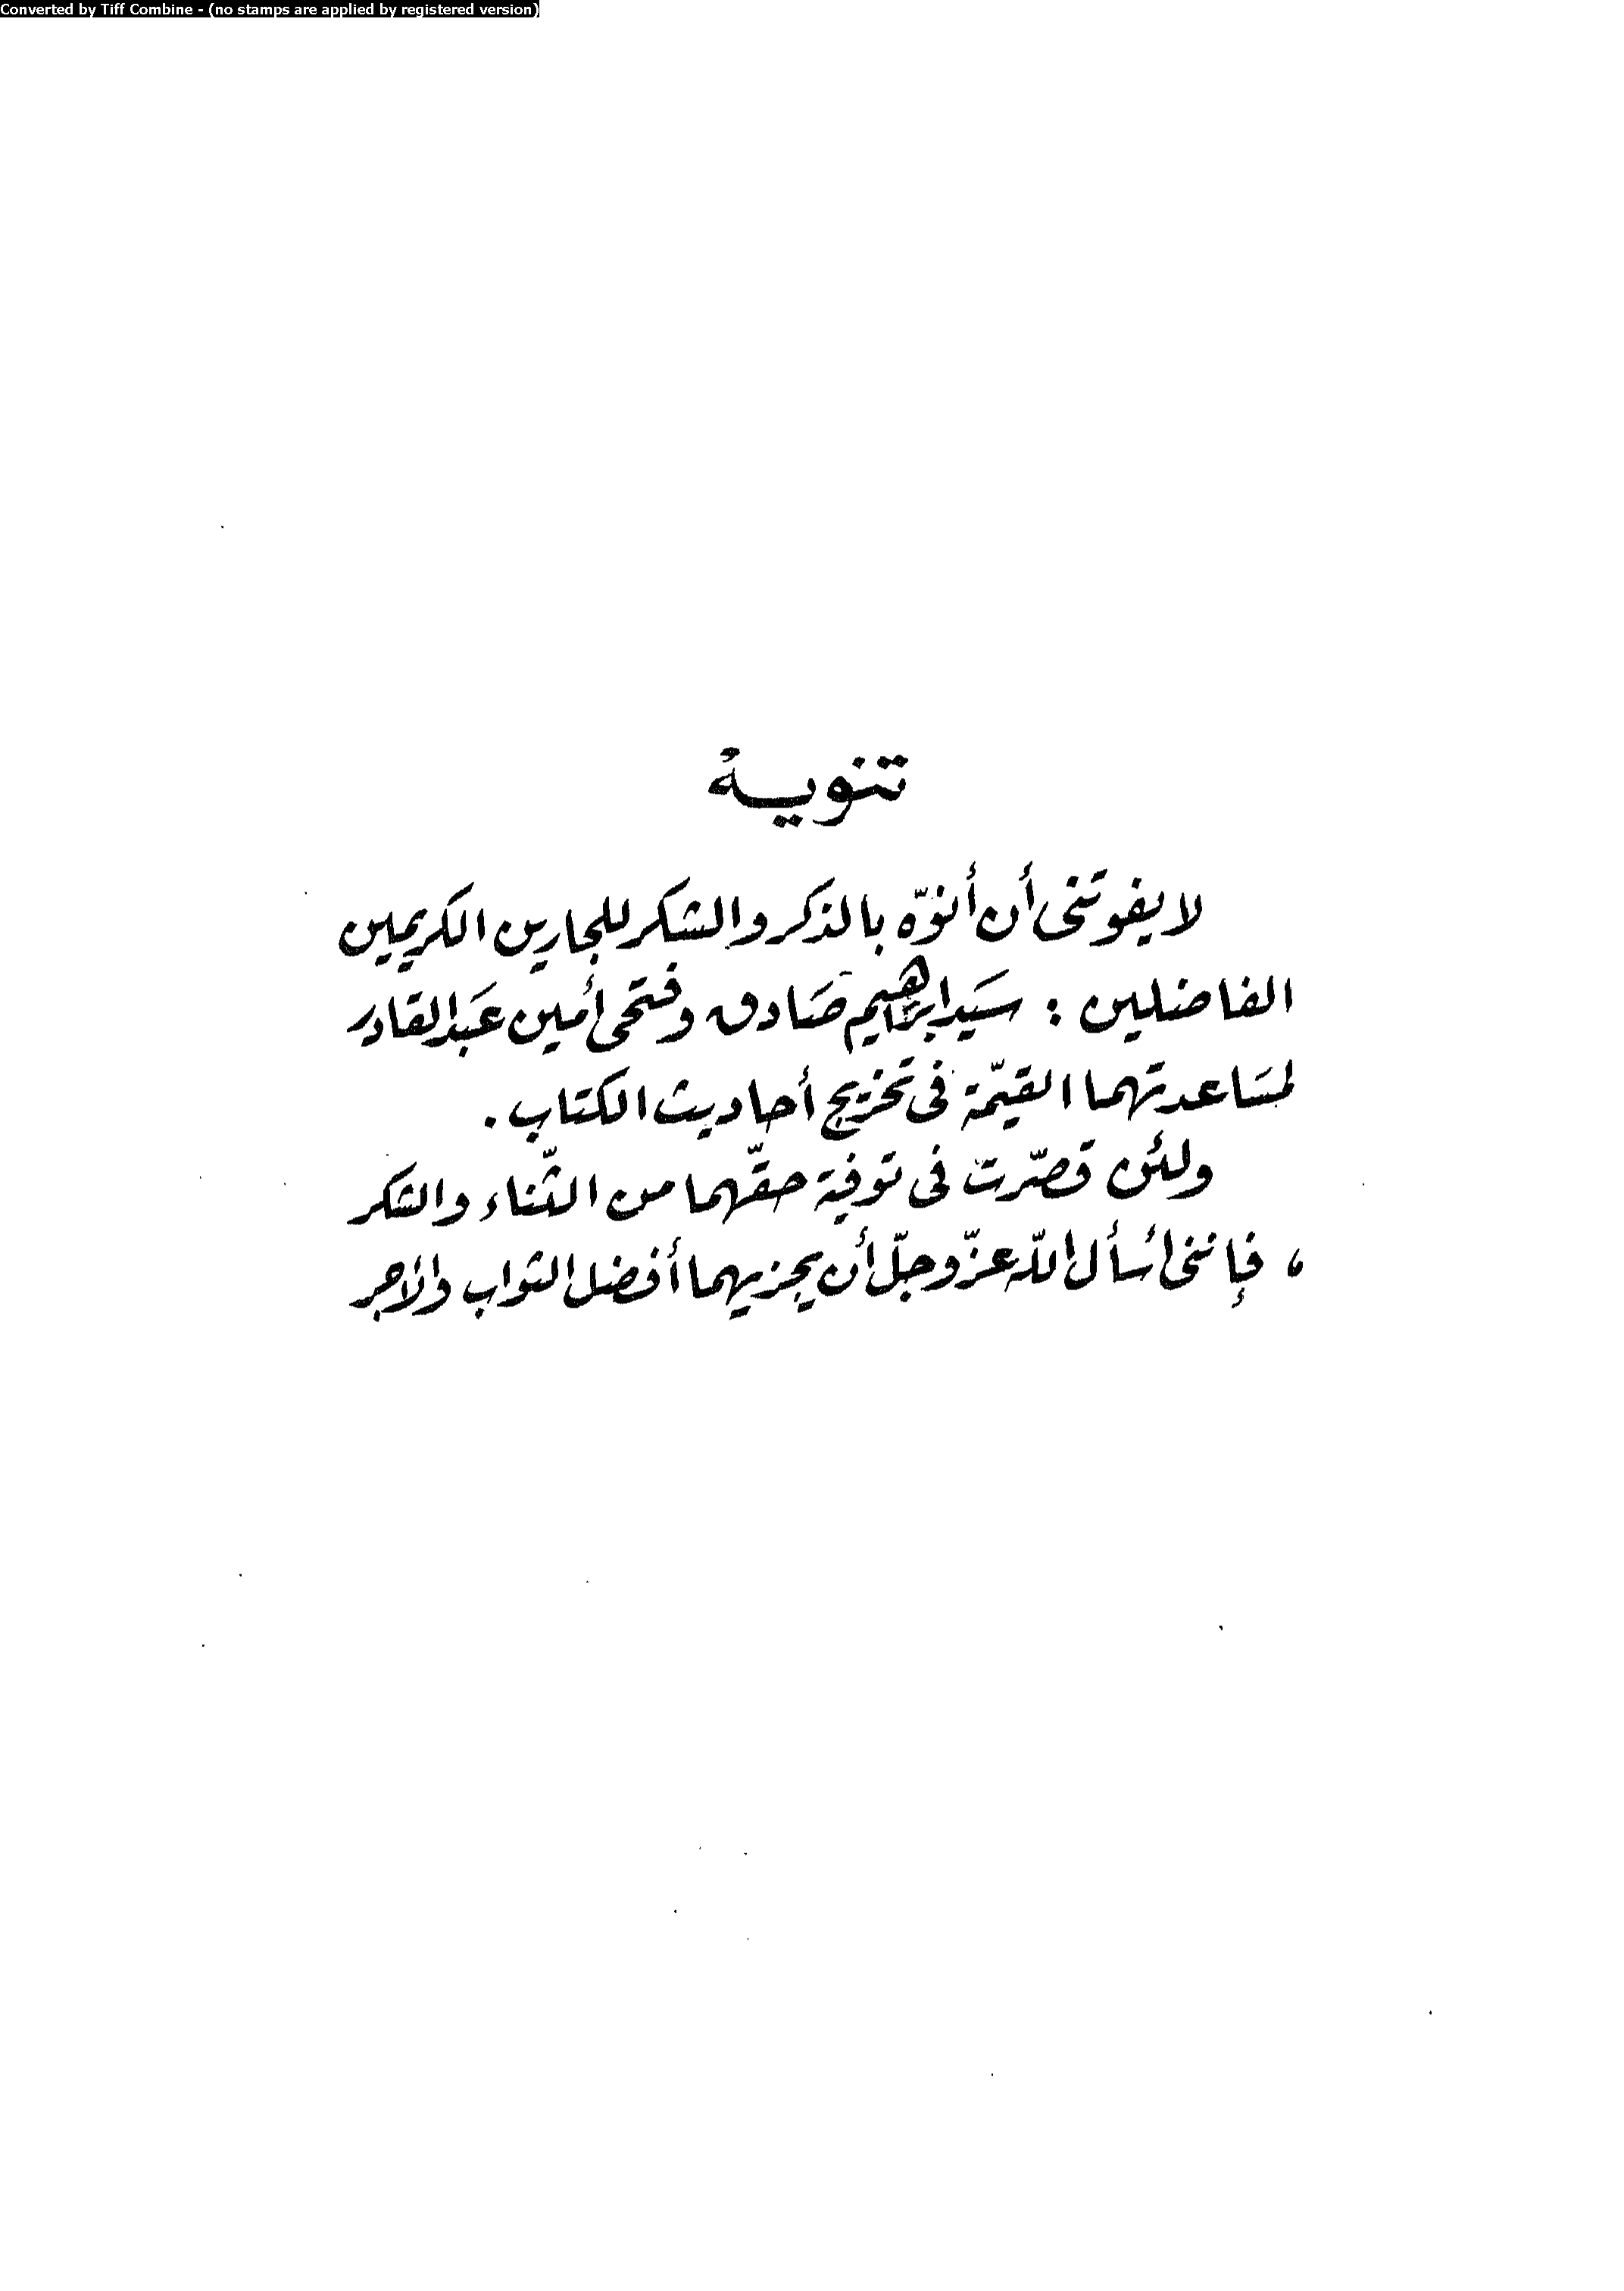 Converted by Tiff Combine - (no stamps are applied by registered version)
تنويهٌ
لا يفوتنى أن أنوّه بالذكر والشكر للجارين الكريمين
الفاضلين : سَيد إبراهيم صَادق وفتحى أمين عَبد القادر
لمسَاعدتهما القيّمة فى تخريج أحاديث الكتاب .
ولئن قصّرت فى توفية حقّهما من الثّناء والشكر
، فإننى أسأل اللّه عزّ وجلّ أن يجزيهما أفضل الثواب والأجر